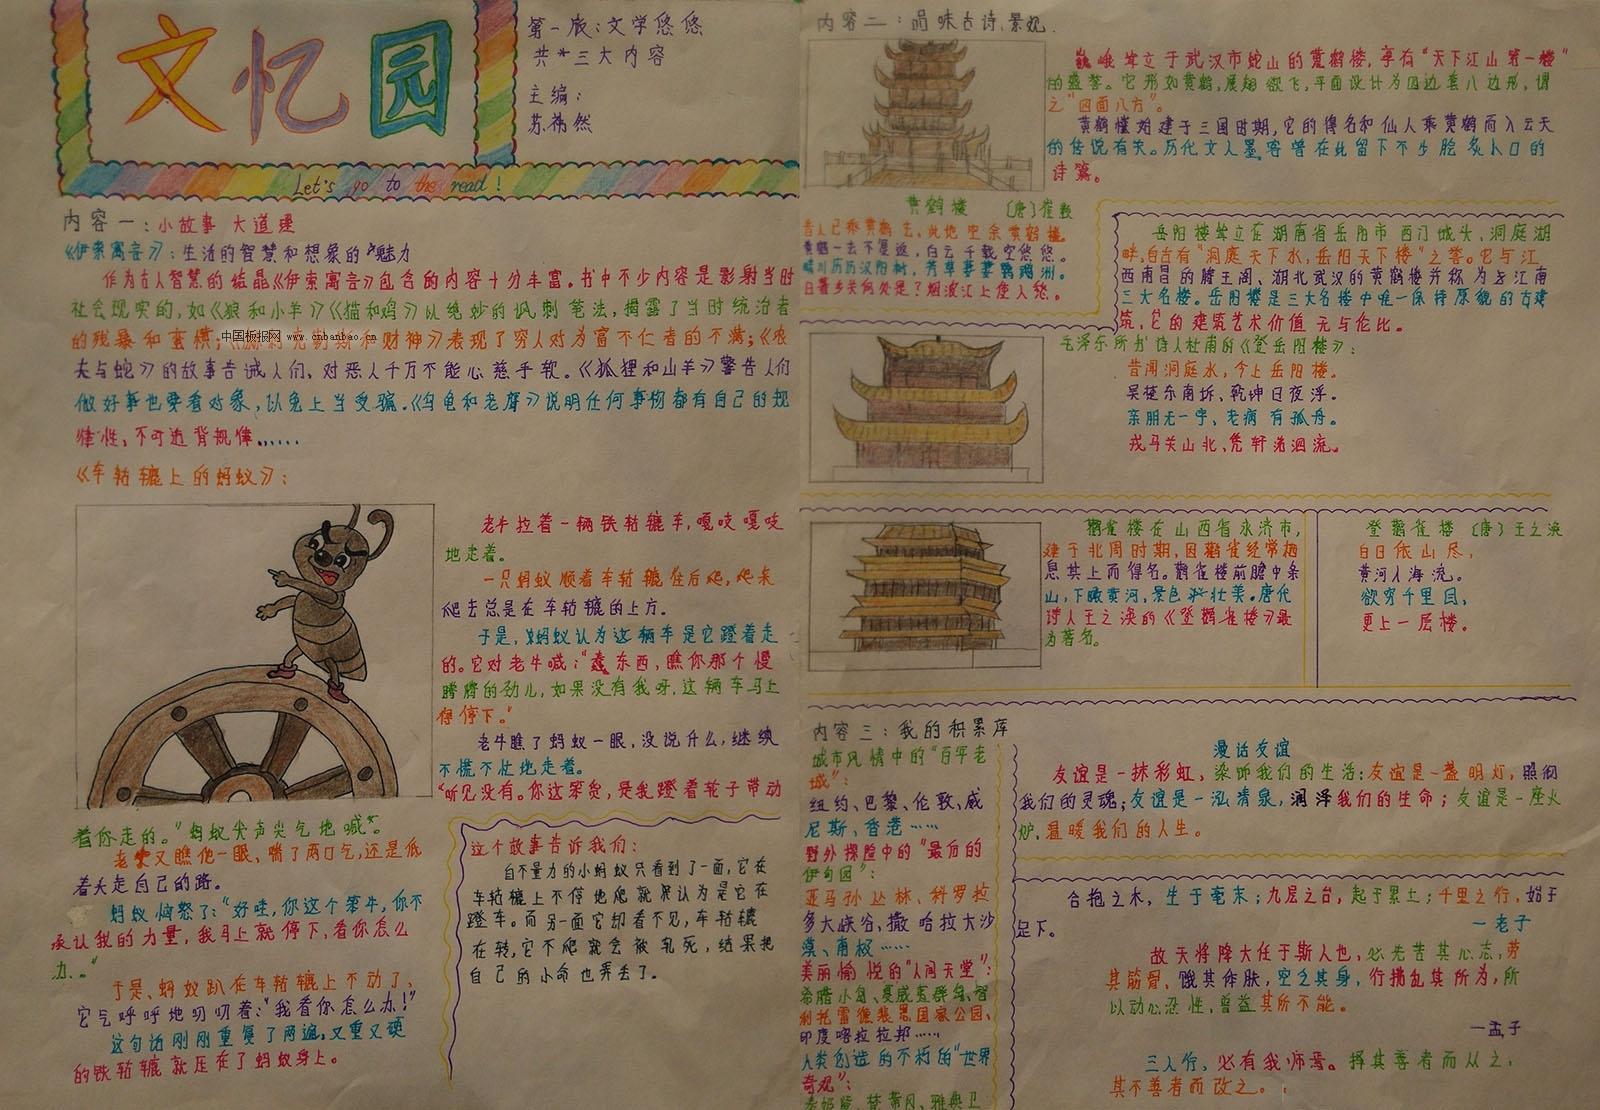 文忆园
第一版：文学悠悠
共*三大内容
主编：
苏祎然
Let's go to the read!
内容一：小故事 大道理
《伊索寓言》：生活的智慧和想象的魅力
作为古人智慧的结晶《伊索寓言》包含的内容十分丰富。书中不少内容是影射当时
社会现实的，如《狼和小羊》《猫和鸡》以绝妙的讽刺笔法，揭露了当时统治者
的残暴和蛮横；
中国板报网 www.cnbanbao.cn
和财神》表现了穷人对为富不仁者的不满；《农
夫与蛇》的故事告诫人们，对恶人千万不能心慈手软。《狐狸和山羊》警告人们
做好事也要看对象，以免上当受骗。《乌龟和老鹰》说明任何事物都有自己的规
律性，不可违背规律......
《车轱辘上的蚂蚁》：
老牛拉着一辆铁轱辘车，嘎吱嘎吱
地走着。
一只蚂蚁顺着车轱辘往后爬，爬来
爬去总是在车轱辘的上方。
于是，蚂蚁认为这辆车是它蹬着走
的。它对老牛喊：“蠢东西，瞧你那个慢
腾腾的劲儿，如果没有我呀，这辆车马上
得停下。”
老牛瞧了蚂蚁一眼，没说什么，继续
不慌不忙地走着。
“听见没有。你这笨货，是我蹬着轮子带动
着你走的。”蚂蚁尖声尖气地喊。
老牛又瞧他一眼，喘了两口气，还是低
着头走自己的路。
蚂蚁恼怒了：“好哇，你这个笨牛，你不
承认我的力量，我马上就停下，看你怎么
办。”
于是，蚂蚁趴在车轱辘上不动了，
它气呼呼地叨叨着：“我看你怎么办！”
这句话刚刚重复了两遍，又重又硬
的铁轱辘就压在了蚂蚁身上。
这个故事告诉我们：
自不量力的小蚂蚁只看到了一面，它在
车轱辘上不停地爬就以为是它在
蹬车。而另一面它却看不见，车轱辘
在转，它不爬就会被轧死，结果把
自己的小命也弄丢了。
内容二：品味古诗、景观.
巍峨耸立于武汉市蛇山的黄鹤楼，享有“天下江山第一楼”
的盛誉。它形如黄鹤，展翅欲飞，平面设计为四边套八边形，谓
之“四面八方”。
黄鹤楼始建于三国时期，它的得名和仙人乘黄鹤而入云天
的传说有关。历代文人墨客曾在此留下不少脍炙人口的
诗篇。
黄鹤楼 〔唐〕崔颢
昔人已乘黄鹤去，此地空余黄鹤楼。
黄鹤一去不复返，白云千载空悠悠。
晴川历历汉阳树，芳草萋萋鹦鹉洲。
日暮乡关何处是？烟波江上使人愁。
岳阳楼耸立在湖南省岳阳市西门城头、洞庭湖
畔，自古有“洞庭天下水，岳阳天下楼”之誉。它与江
西南昌的滕王阁、湖北武汉的黄鹤楼并称为江南
三大名楼。岳阳楼是三大名楼中唯一保持原貌的古建
筑，它的建筑艺术价值无与伦比。
毛泽东所书诗人杜甫的《登岳阳楼》：
昔闻洞庭水，今上岳阳楼。
吴楚东南坼，乾坤日夜浮。
亲朋无一字，老病有孤舟。
戎马关山北，凭轩涕泗流。
鹳雀楼在山西省永济市，
建于北周时期，因鹳雀经常栖
息其上而得名。鹳雀楼前瞻中条
山，下瞰黄河，景色壮美。唐代
诗人王之涣的《登鹳雀楼》最
为著名。
登鹳雀楼〔唐〕王之涣
白日依山尽，
黄河入海流。
欲穷千里目，
更上一层楼。
内容三：我的积累库
城市风情中的“百年老
城”：
纽约、巴黎、伦敦、威
尼斯、香港……
野外探险中的“最后的
伊甸园”：
亚马孙丛林、科罗拉
多大峡谷、撒哈拉大沙
漠、南极……
美丽愉悦的“人间天堂”：
希腊小岛、夏威夷群岛、智
利托雷德裴恩国家公园、
印度喀拉拉邦……
人类创造的不朽的“世界
奇观”：
泰姬陵、梵蒂冈、雅典卫
漫话友谊
友谊是一抹彩虹，染饰我们的生活；友谊是一盏明灯，照彻
我们的灵魂；友谊是一泓清泉，润泽我们的生命；友谊是一座火
炉，温暖我们的人生。
合抱之木，生于毫末；九层之台，起于累土；千里之行，始于
足下。
—老子
故天将降大任于斯人也，必先苦其心志，劳
其筋骨，饿其体肤，空乏其身，行拂乱其所为，所
以动心忍性，曾益其所不能。
—孟子
三人行，必有我师焉。择其善者而从之，
其不善者而改之。